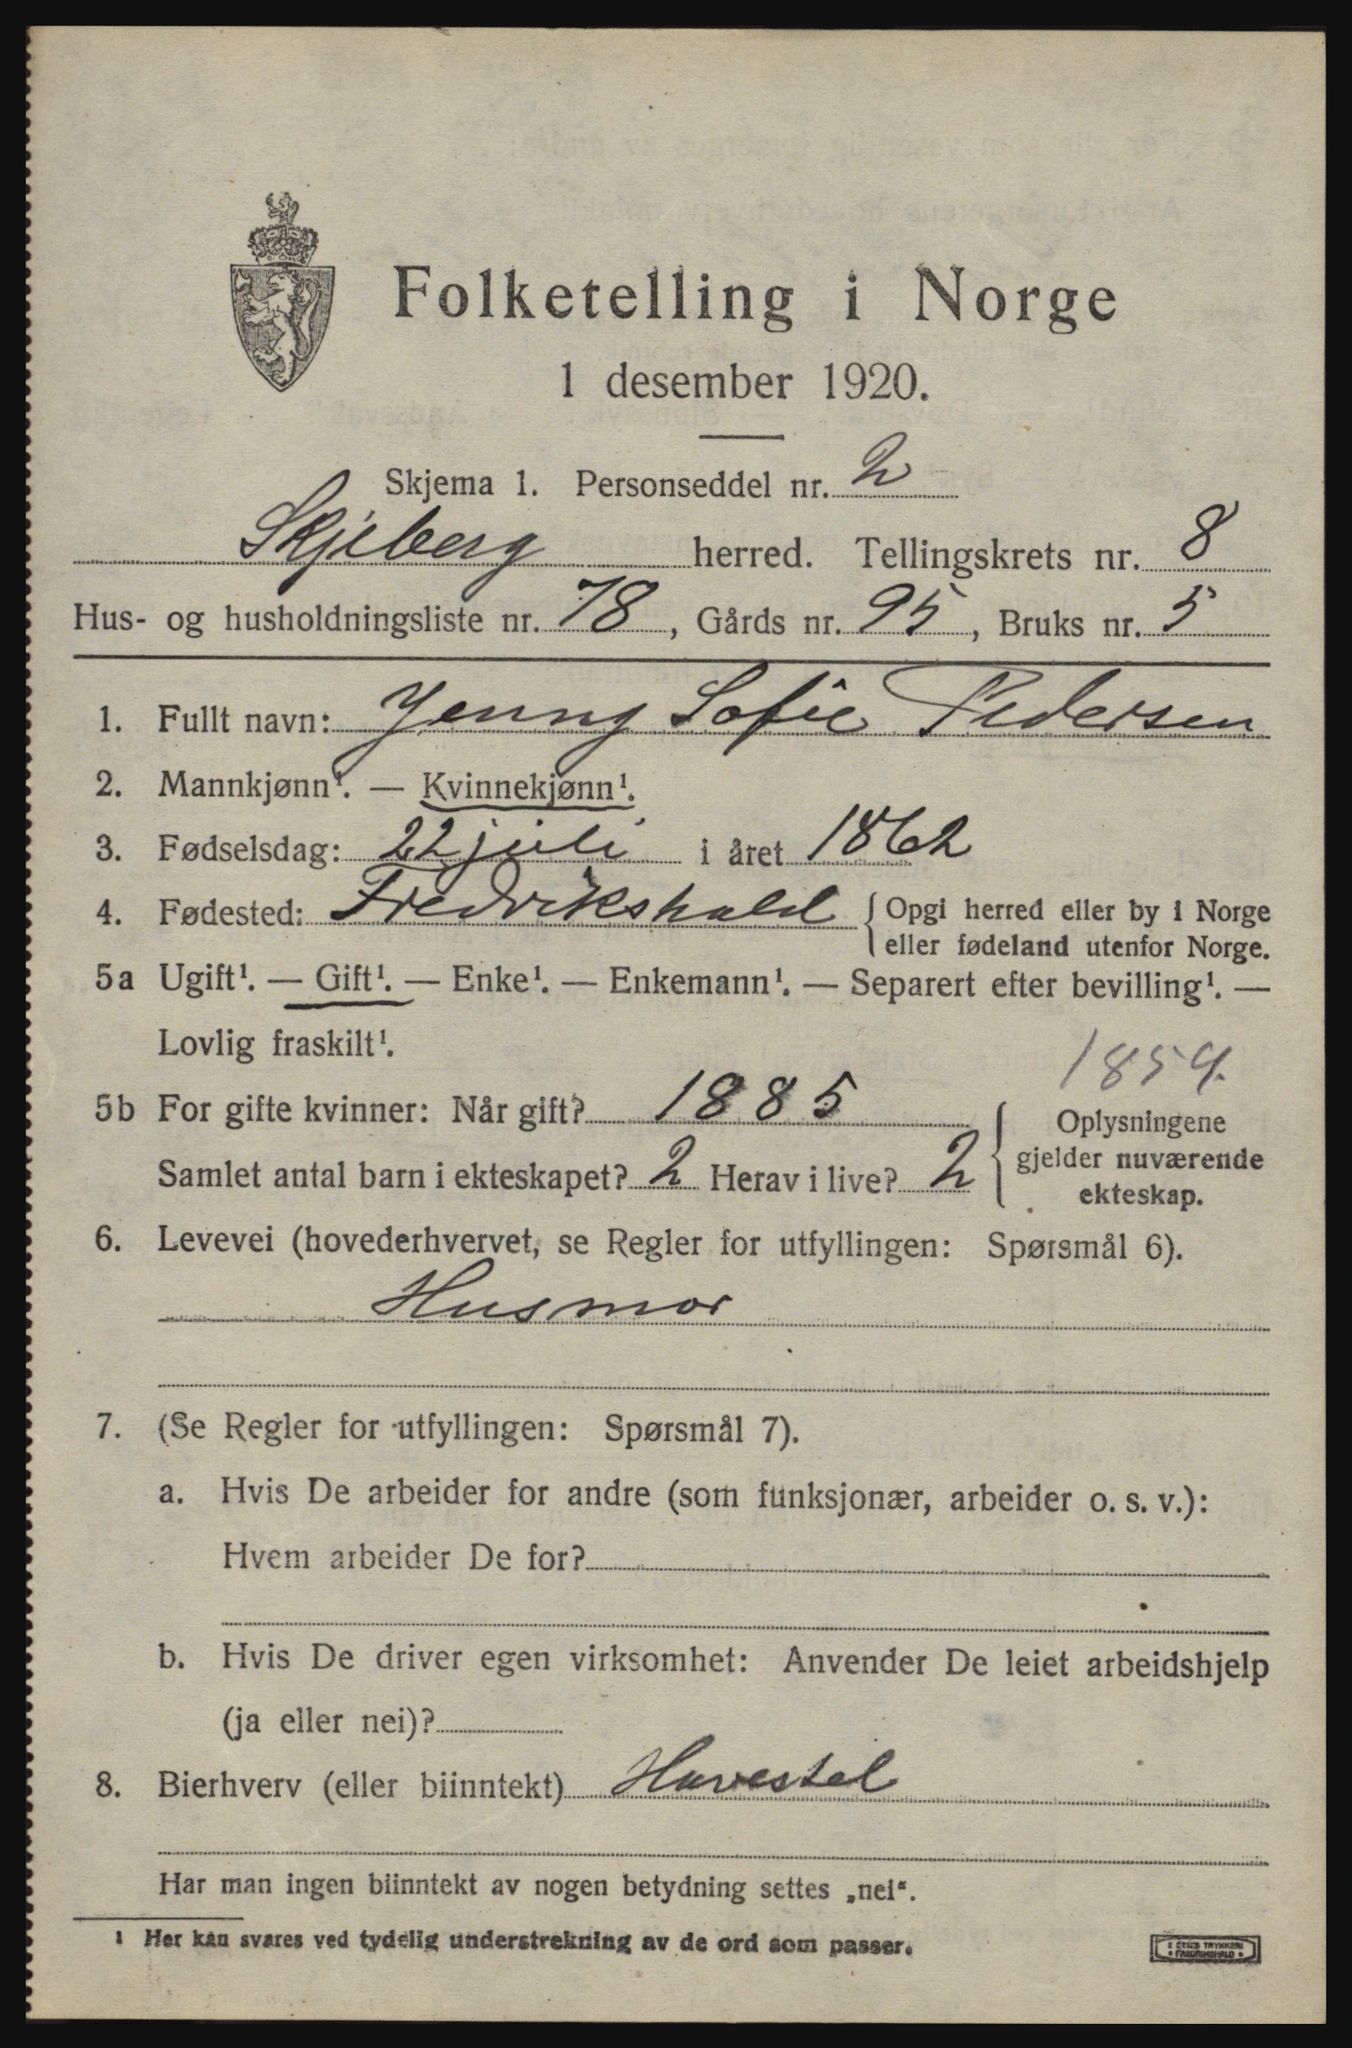 Folketelling i Norge
1 desember 1920.
Skjema 1. Personseddel nr. 2
Skjeberg herred. Tellingskrets nr. 8
Hus- og husholdningsliste nr. 78, Gårds nr. 95, Bruks nr. 5
1. Fullt navn: Jenny Sofie Pedersen
2. Mannkjønn¹. — Kvinnekjønn¹.
3. Fødselsdag: 22 juli i året 1862
4. Fødested: Fredrikshald { Opgi herred eller by i Norge
eller fødeland utenfor Norge.
5a Ugift¹. — Gift¹. — Enke¹. — Enkemann¹. — Separert efter bevilling¹. —
Lovlig fraskilt¹.
1854.
5b For gifte kvinner: Når gift? 1885
Samlet antal barn i ekteskapet? 2 Herav i live? 2
{ Oplysningene
gjelder nuværende
ekteskap.
6. Levevei (hovederhvervet, se Regler for utfyllingen: Spørsmål 6).
Husmor
7. (Se Regler for utfyllingen: Spørsmål 7).
a. Hvis De arbeider for andre (som funksjonær, arbeider o. s. v.):
Hvem arbeider De for?
b. Hvis De driver egen virksomhet: Anvender De leiet arbeidshjelp
(ja eller nei)?
8. Bierhverv (eller biinntekt) Havestel
Har man ingen biinntekt av nogen betydning settes „nei“.
1 Her kan svares ved tydelig understrekning av de ord som passer.
TRYKKERI
FREDRIKSHALD